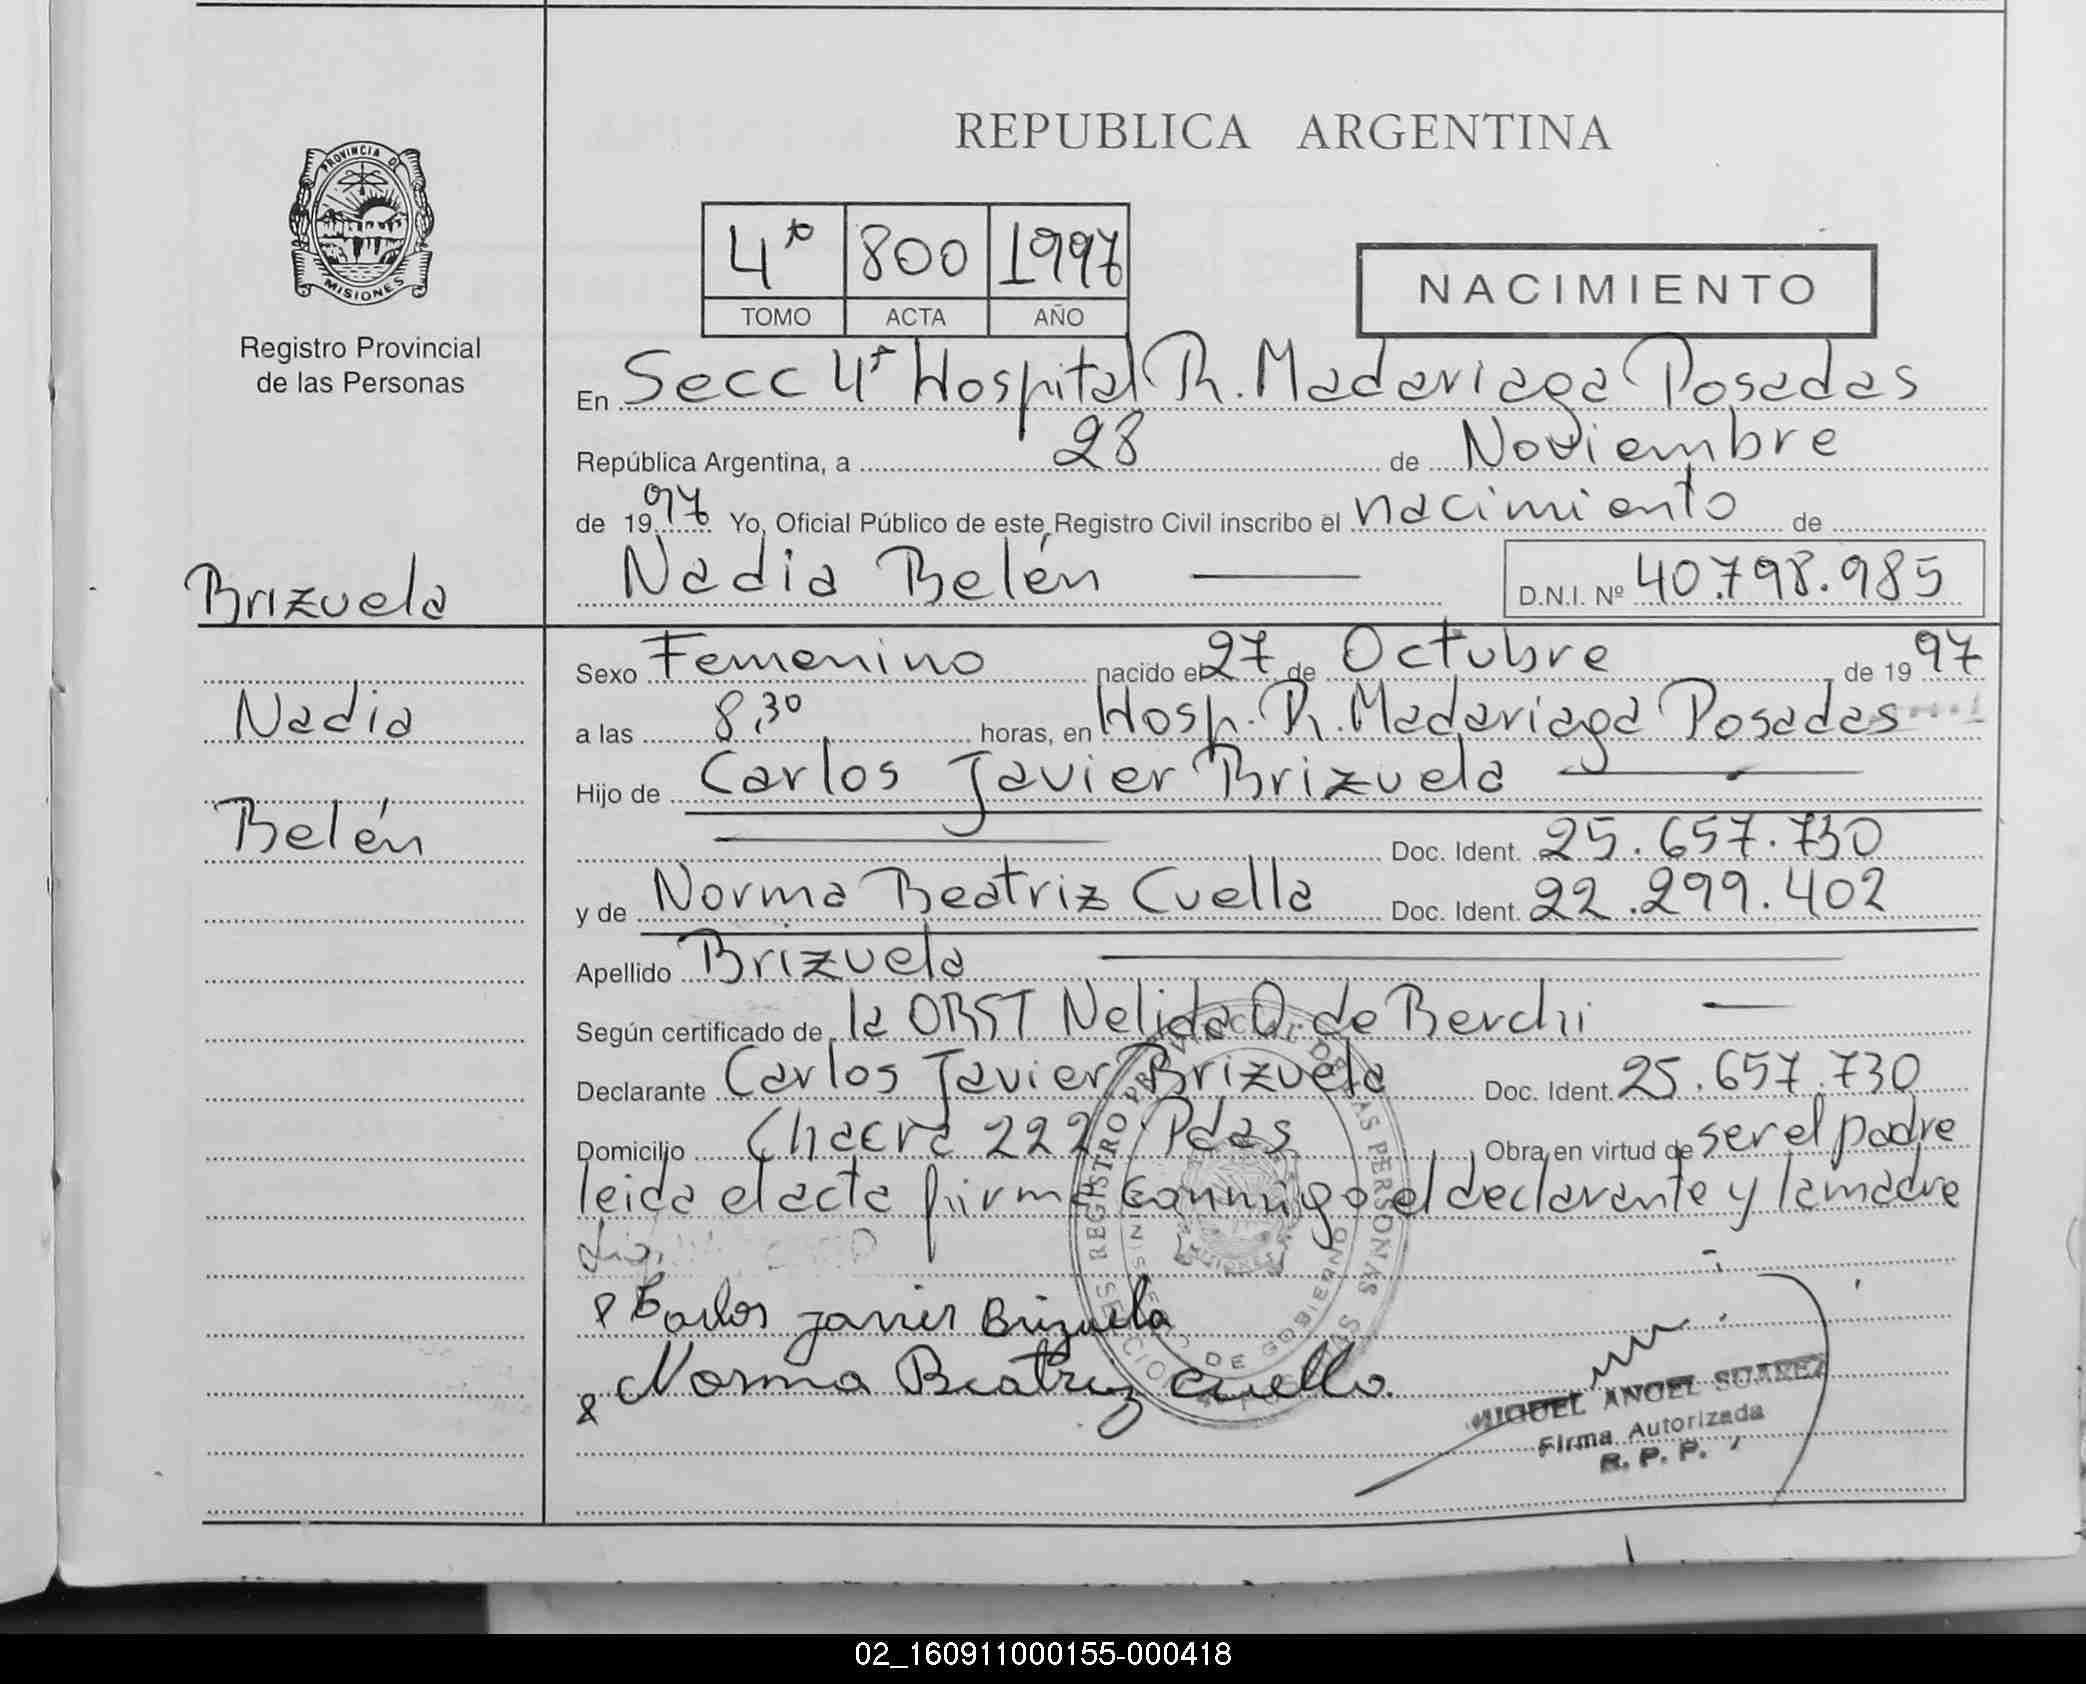 REPUBLICA ARGENTINA
PROVINCIA DE
MISIONES
Registro Provincial
de las Personas
4to 800 1997
TOMO ACTA AÑO
NACIMIENTO
En Secc 4ta Hospital R. Madariaga Posadas
República Argentina, a 28 de Noviembre
de 1997 Yo, Oficial Público de este Registro Civil inscribo el nacimiento de
Nadia Belén
D.N.I. Nº 40.798.985
Brizuela
Nadia
Belén
Sexo Femenino nacido el 27 de Octubre de 1997
a las 8,30 horas, en Hosp. R. Madariaga Posadas
Hijo de Carlos Javier Brizuela
Doc. Ident. 25.657.730
y de Norma Beatriz Cuella Doc. Ident. 22.299.402
Apellido Brizuela
Según certificado de la OBST Nelida O. de Berchi
Declarante Carlos Javier Brizuela Doc. Ident. 25.657.730
Domicilio Chacra 222 Pdas Obra en virtud de ser el padre
leida el acta firma conmigo el declarante y la madre
Carlos Javier Brizuela
Norma Beatriz Cuello
REGISTRO PROVINCIAL DE LAS PERSONAS
DE GOBIERNO
MIGUEL ANGEL SUAREZ
Firma Autorizada
R. P. P.
02_160911000155-000418